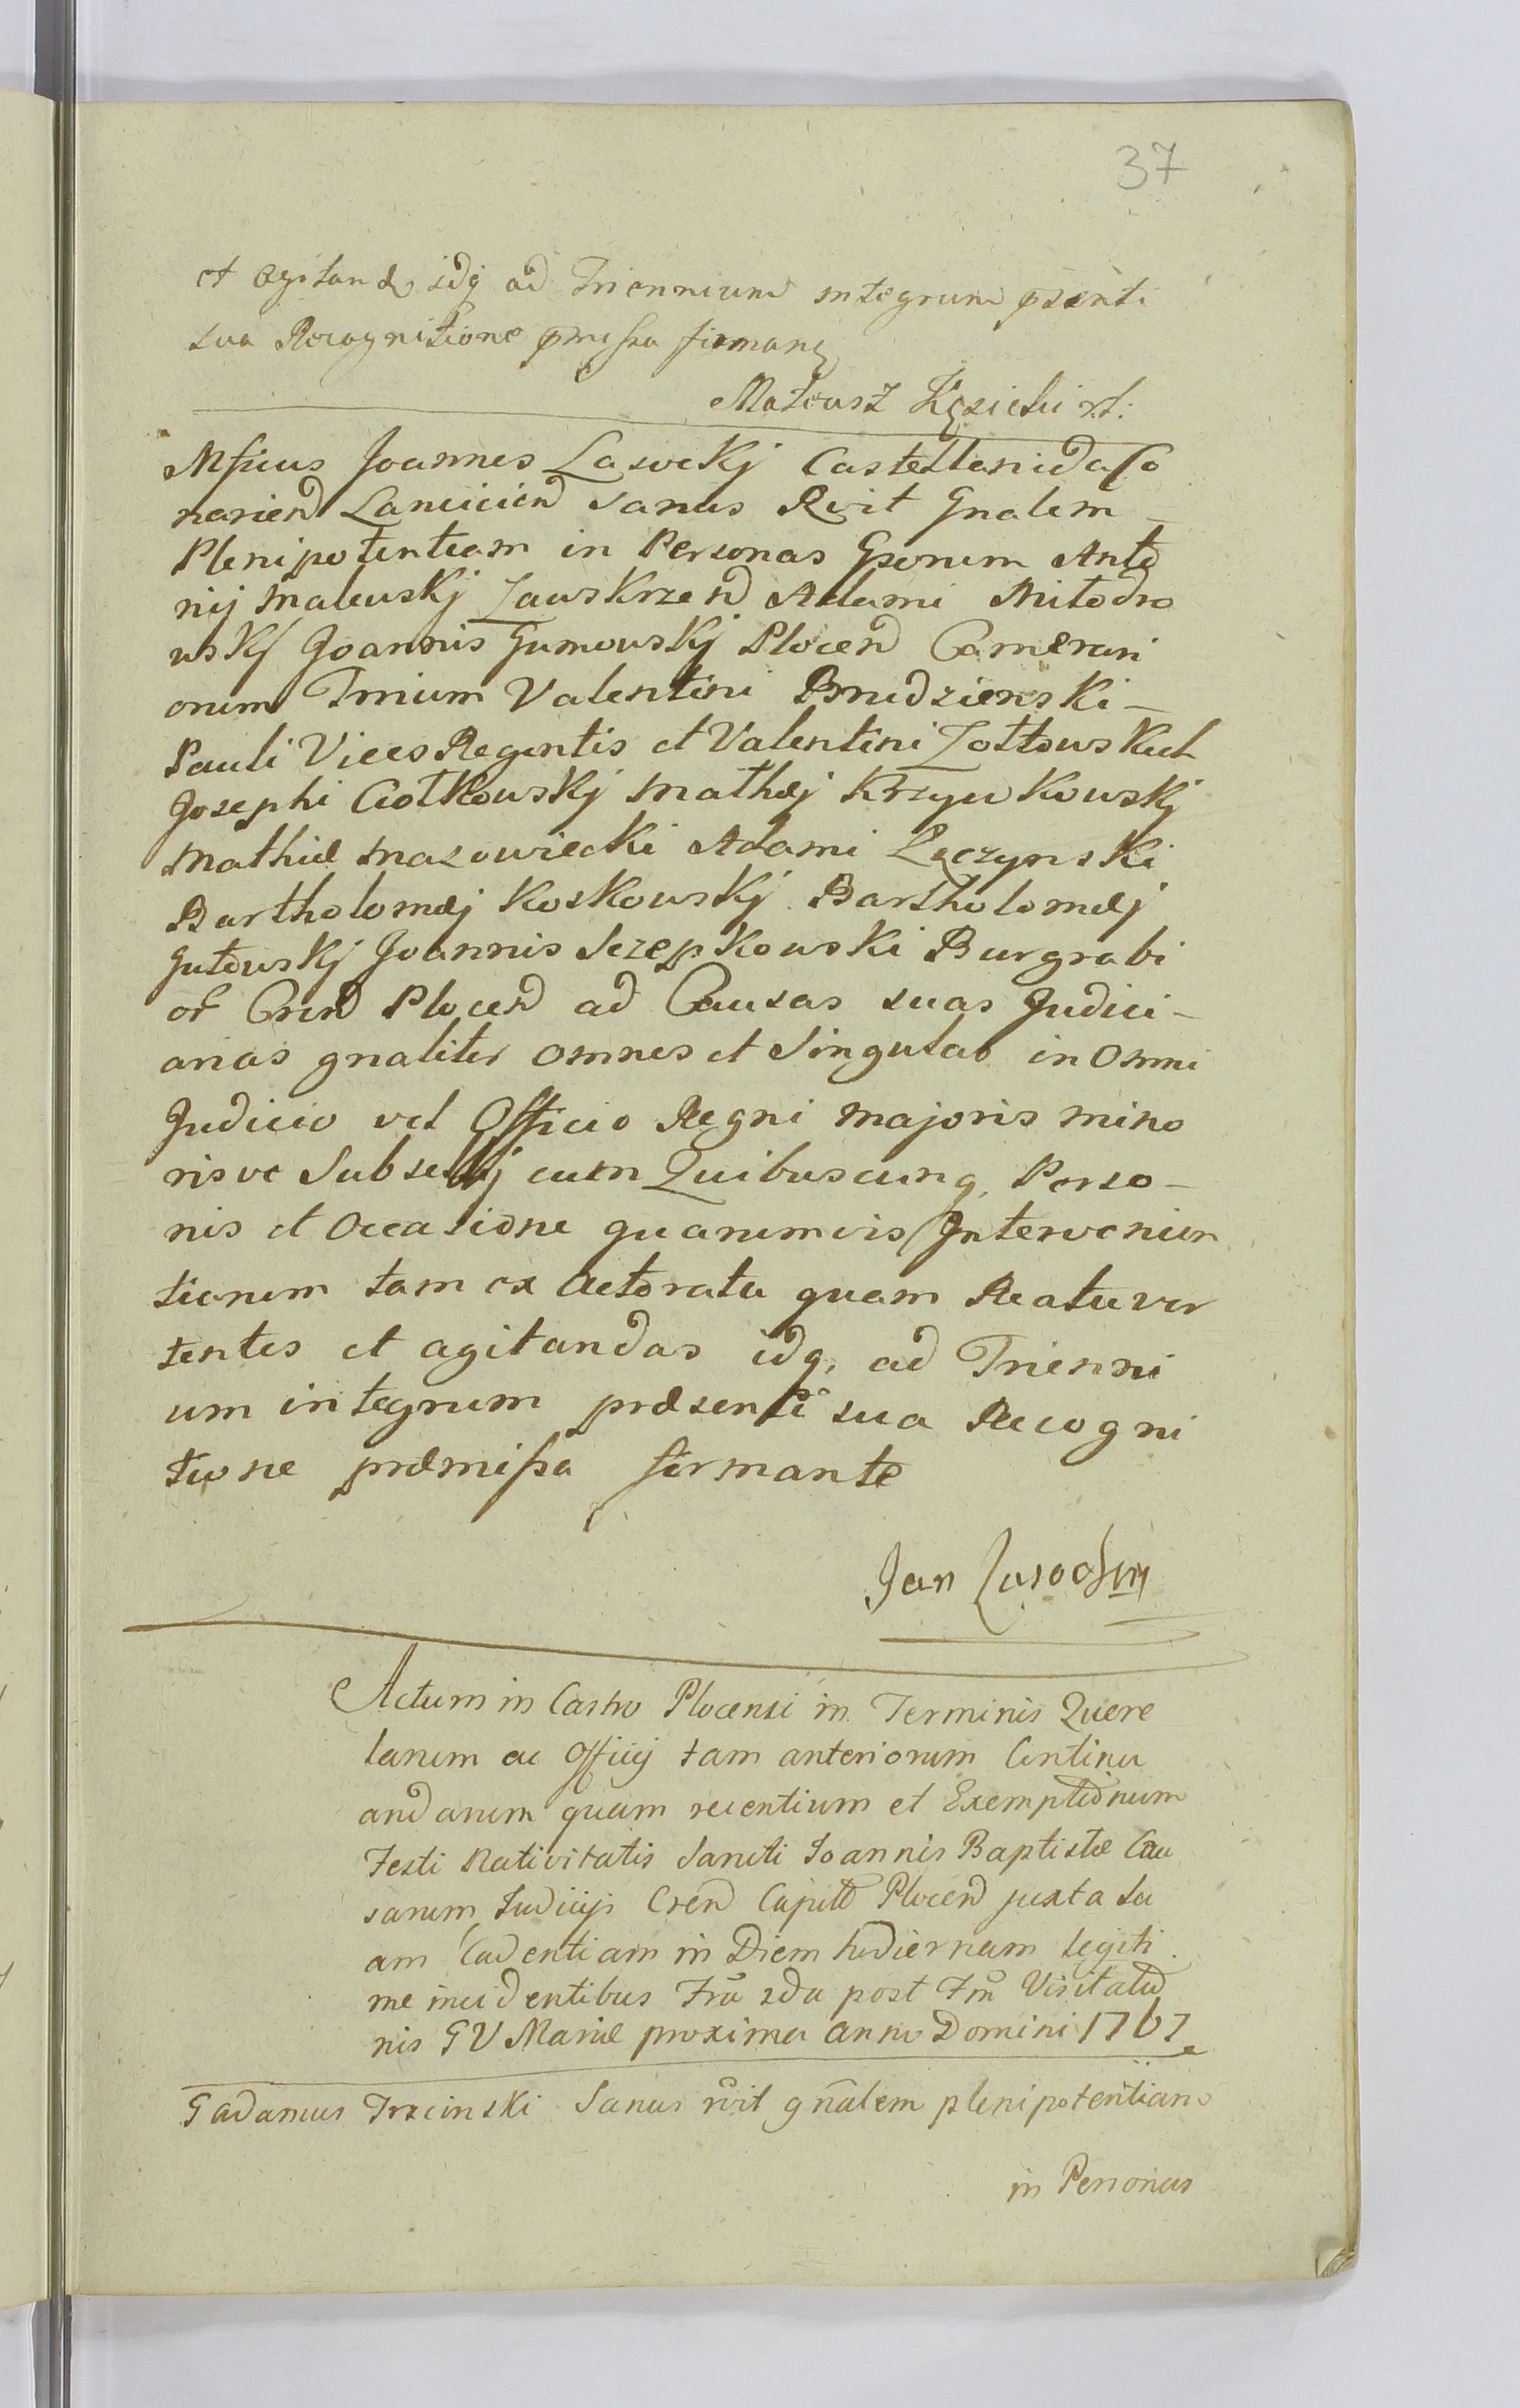 37
et agitand idq ad Triennium integrum pśenti
sua Recognitione pmissa firman
Mateusz
Mficus Joannes Lasockj Castellanida Co
narien Lancicien Sanus Rvit Gnalem
Plenipotentiam in Personas Gserum Anto
nij Malewskj Zawskrzen Adami Miłodro
wskj Joannis Gumowskj Plocen Camerari
orum Trnium Valentini Brudzienski –
Pauli Vices Regentis et Valentini Zołtowskich
Josephi Ciołkowskj Mathæj Krzywkowskj
Mathiæ Mazowiecki Adami Lączynski
Bartholomæj Koskowskj Bartholomæj
Gutowskj Joannis Szczepkowski Burgrabi
or Cren Plocen ad Causas suas Judici –
arias gnaliter omnes et Singulas in Omni
Judicio vel Officio Regni majoris mino
risve Subsellij cum Quibuscunq, Perso –
nis et Occasione quarumvis Interveniun
tionum tam ex Actoratu quam Reatu ver
tentes et agitandas idq, ad Trienni
um integrum præsenti sua Recogni
tione præmissa firmante
Jan Lasocki mp
Actum in Castro Plocensi in Terminis Quere
larum ac Officij tam anteriorum Continu
andarum quam recentium et Exemptionum
Festi Nativitatis Sancti Joannis Baptistæ Cau
sarum Judicijs Cren Capitt Plocen juxta su
am Cadentiam in Diem hodiernam legiti
me incidentibus Fra 2da post Fm Visitatio
nis G V Mariæ proxima Anno Domini 1767
G Adamus Trzcinski Sanus rvit gnalem plenipotentiam
in Personas